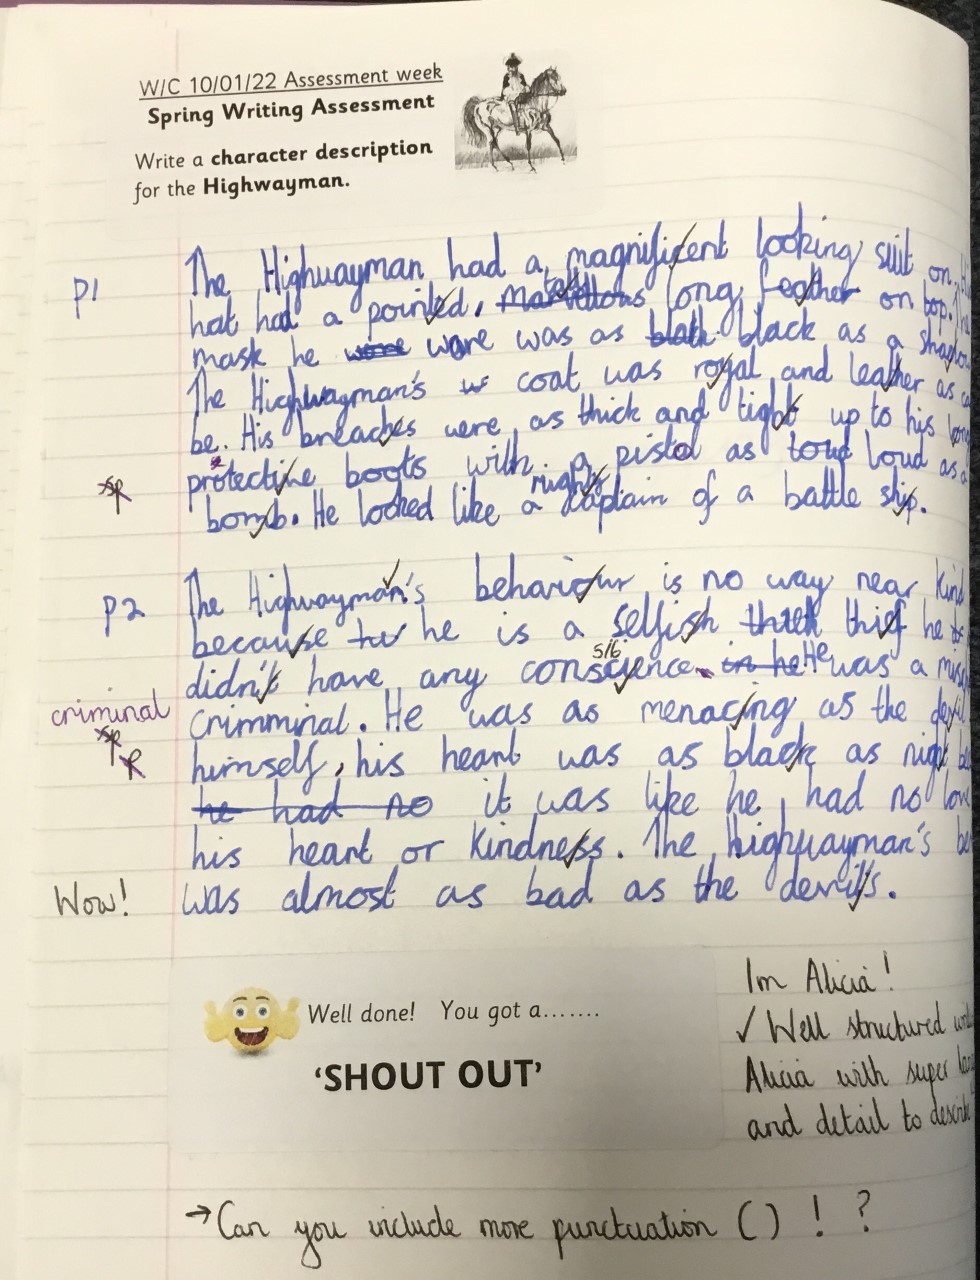 W/C 10/01/22 Assessment week
Spring Writing Assessment
Write a character description
for the Highwayman.
P1
The Highwayman had a magnificent looking suit on.
hat had a pointed, long feather on top.
mask he wore was as black as a
The Highwayman's coat was royal and leather as
be. His breaches were as thick and tight up to his
protective boots with a pistol as loud as a
right
bomb. He looked like a captain of a battle ship.
sp
P2
The Highwayman's behaviour is no way near kind
because he is a selfish thief he
didn't have any conscyence. He was a
5/6
criminal
sp
crimminal. He was as menacing as the devil
himself, his heart was as black as night
he had no it was like he had no love
his heart or kindness. The highwayman's
Wow!
was almost as bad as the devil's.
Well done! You got a.......
'SHOUT OUT'
Im Alicia!
✓ Well structured
Alicia with super
and detail to
→ Can you include more punctuation ( ) ! ?